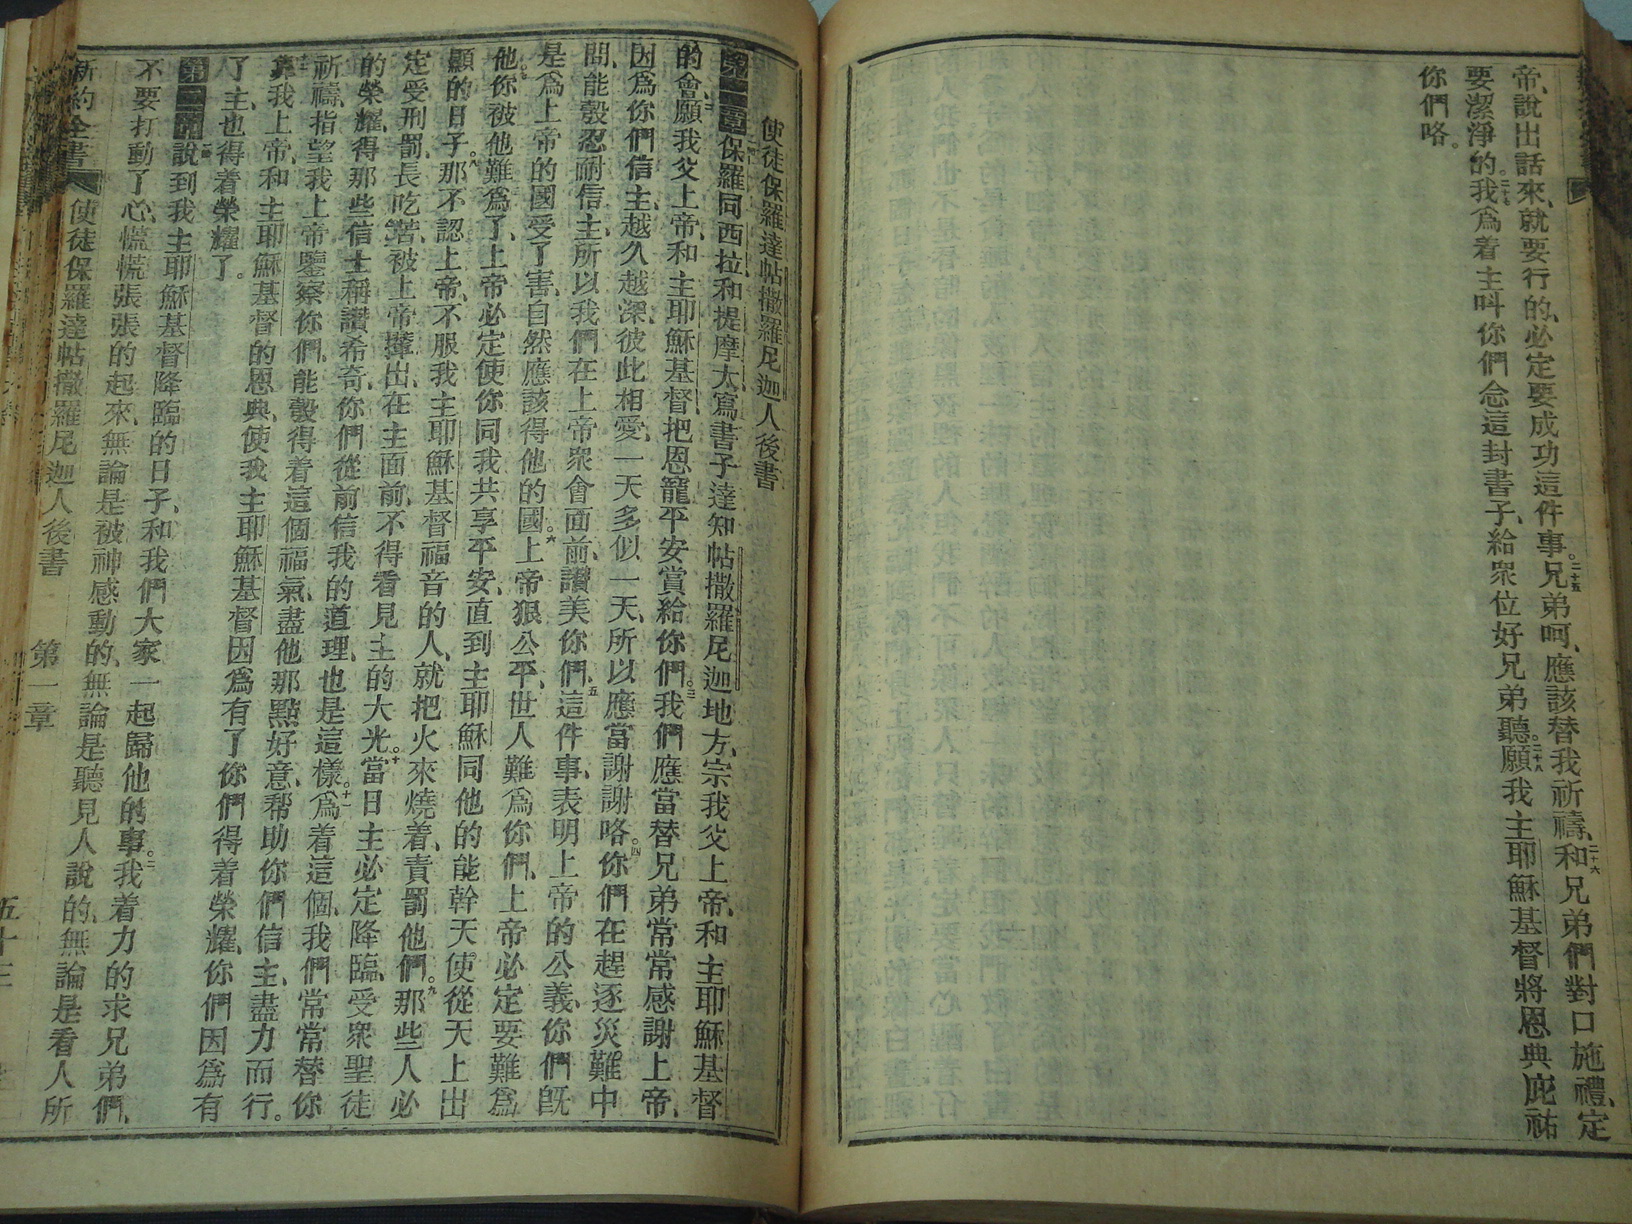 帝、說出話來、就要行的、必定要成功這件事。二十五兄弟呵、應該替我祈禱、二十六和兄弟們對口施禮、定
要潔淨的。二十七我爲着主叫你們念這封書子、給眾位好兄弟聽。二十八願我主耶穌基督將恩典庇祐
你們咯。
使徒保羅達帖撒羅尼迦人後書
第一章保羅同西拉和提摩太寫書子達知帖撒羅尼迦地方、宗我父上帝、和主耶穌基督
的會、二願我父上帝、和主耶穌基督、把恩寵平安賞給你們。三我們應當替兄弟常常感謝上帝、
因爲你們信主、越久越深、彼此相愛、一天多似一天、所以應當謝謝咯。四你們在趕逐災難中
間、能彀忍耐信主、所以我們在上帝眾會面前、讚美你們、五這件事、表明上帝的公義、你們旣
是爲上帝的國受了害、自然應該得他的國。六上帝狠公平、世人難爲你們、上帝必定要難爲
他、七你被他難爲了、上帝必定使你同我共享平安、直到主耶穌同他的能幹天使從天上出
顯的日子。八那不認上帝、不服我主耶穌基督福音的人、就把火來燒着、責罰他們。九那些人必
定受刑罰、長吃苦、被上帝攆出、在主面前、不得看見主的大光。十當日主必定降臨、受眾聖徒
的榮耀、得那些信主稱讚希奇、你們從前信我的道理、也是這樣。十一爲着這個、我們常常替你
祈禱、指望我上帝鑒察你們、能彀得着這個福氣、盡他那點好意、帮助你們信主、盡力而行。
十二靠我上帝、和主耶穌基督的恩典、使我主耶穌基督因爲有了你們得着榮耀、你們因爲有
了主、也得着榮耀了。
第二章一說到我主耶穌基督降臨的日子、和我們大家一起歸他的事。二我着力的求兄弟們、
不要打動了心、慌慌張張的起來、無論是被神感動的、無論是聽見人說的、無論是看人所
新約全書 使徒保羅達帖撒羅尼迦人後書 第一章 五十三